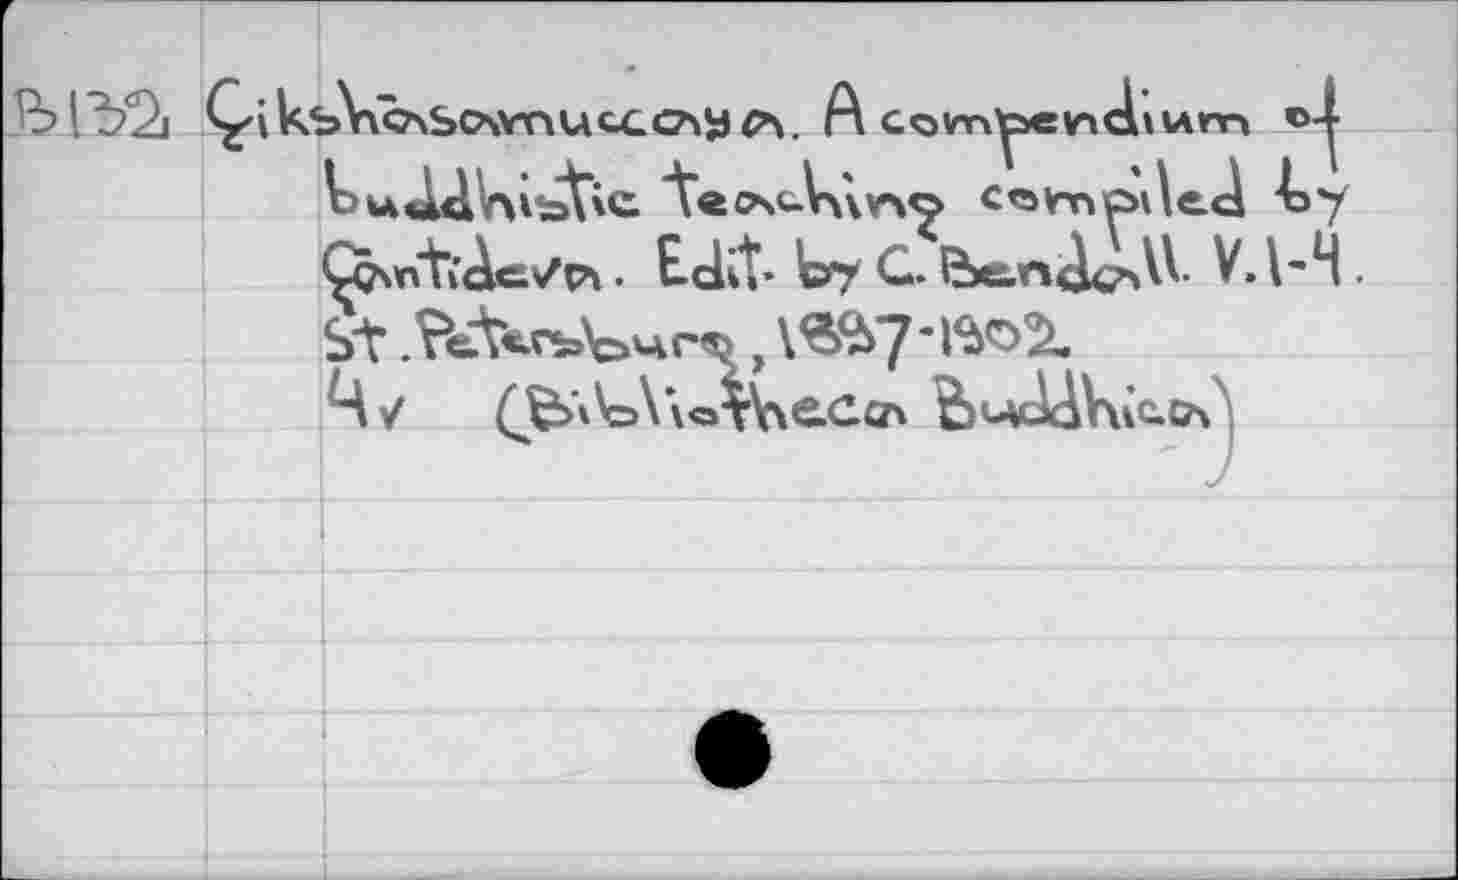 B1321 Çikshāsamuccaya. A compendium of
buddhistic teaching compiled by
Çāntideva. Edit. by C. Bendall. V.1-4.
St. Petersburg, 1897-1902.
4v (Bibliotheca Buddhica)